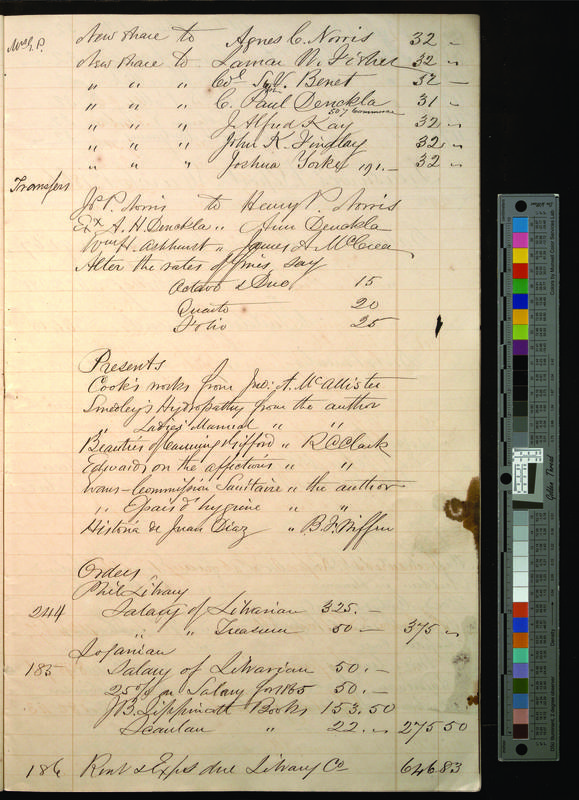 New share to Agnes C. Norris 32 –
New share to Lamar W. Fisher 32 "
" " " Col S. V. Benet 32 –
" " " C. Paul Denckla 31 "
" " " J. Alfred Kay 32 "
" " " John K. Findlay 32 "
" " " Joshua Yorke 191.– 32 "
Transfers
Jos P. Norris to Henry P. Norris
Ex A. H. Denckla " Ann Denckla
Wm H. Ashhurst " James A. McCrea
Alter the rates of fines, say
Octavo & Duo 15
Quarto 20
Folio 25
Presents
Cook's works from Jno: A. McAllister
Smedley's Hydropathy from the author
" Ladies' Manual " "
Beauties of Canning & Gifford " R C Clark
Edwards on the affections " "
Evans – Commission Sanitaire " the author
" hygiene " "
Historia de Juan Diaz " B. J. Wiffen
Orders
Phil Library
244 Salary of Librarian 325. –
" " Treasurer 50 – 375 "
Loganian
185 Salary of Librarian 50. –
25 % on Salary for 1865 50. –
J B. Lippincott Books 153.50
Scanlan " 22. " 275 50
186 Rent & Exps due Library Co 646 83